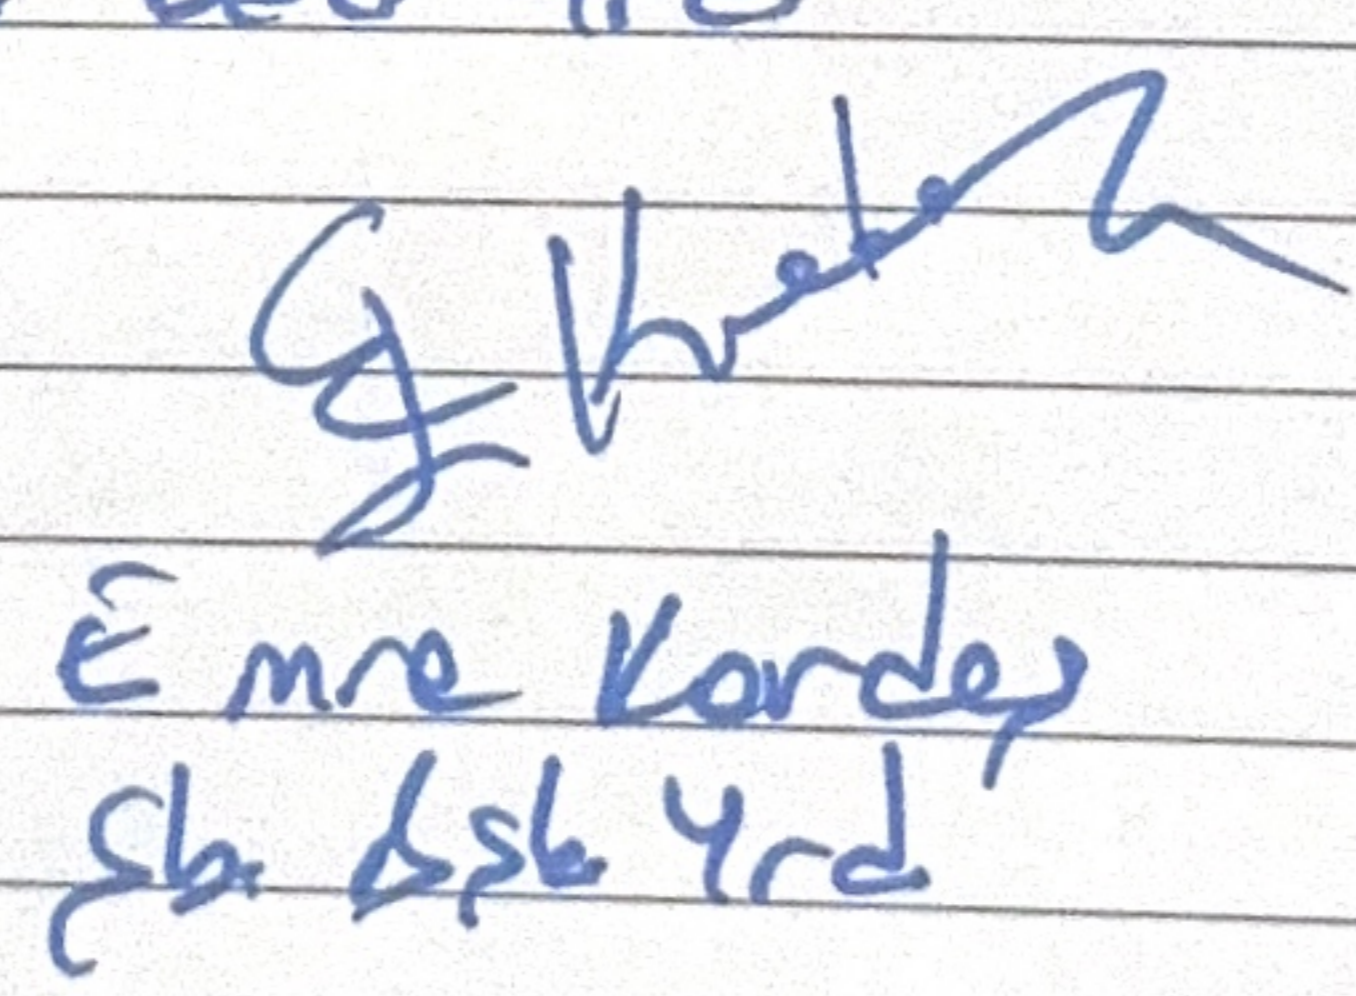 Emre Kardeş
Şb. Bşk Yrd